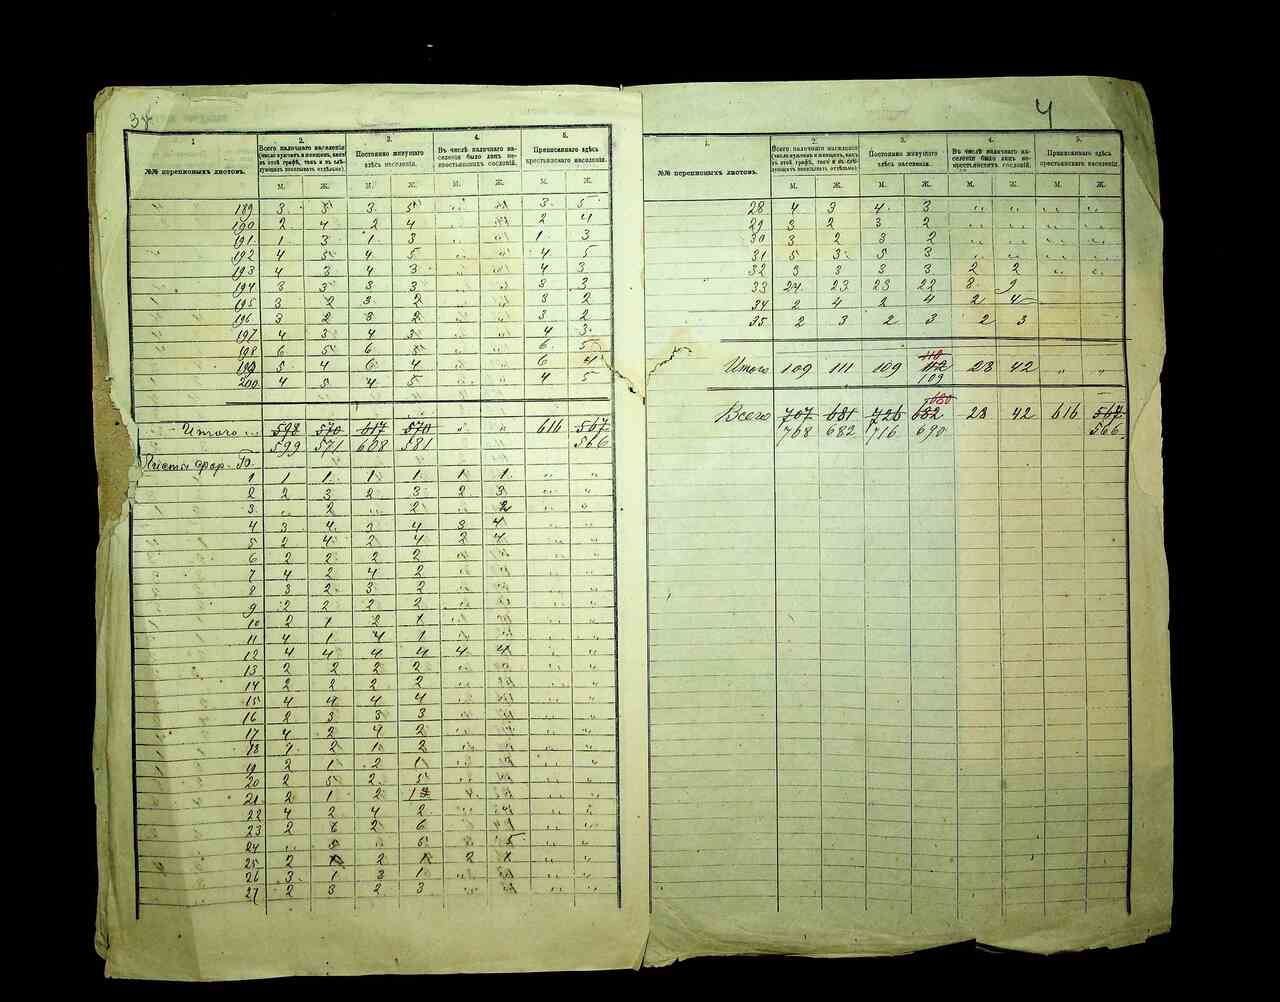 3
1
2.
3.
4.
5.
№№ переписныхъ листовъ.
Всего наличнаго населенія (число мужчинъ и женщинъ, какъ въ этой графѣ, такъ и въ слѣдующихъ показывать отдѣльно).
Постоянно живущаго здѣсь населенія.
Въ числѣ наличнаго населенія было лицъ некрестьянскихъ сословій.
Приписаннаго здѣсь крестьянскаго населенія.
м. ж. м. ж. м. ж. м. ж.
189 3 5 3 5 " " 3 5
190 2 4 2 4 " " 2 4
191 1 3 1 3 " " 1 3
192 4 5 4 5 " " 4 5
193 4 3 4 3 " " 4 3
194 3 3 3 3 " " 3 3
195 3 2 3 2 " " 3 2
196 3 2 3 2 " " 3 2
197 4 3 4 3 " " 4 3
198 6 5 6 5 " " 6 5
199 5 4 6 4 " " 6 4
200 4 5 4 5 " " 4 5
Итого 598 570 617 570 " " 616 567
599 571 608 581 566
Листы фор. Б.
1 1 1 1 1 1 1 " "
2 2 3 2 3 2 3 " "
3 " 2 " 2 " 2 " "
4 3 4 3 4 3 4 " "
5 2 4 2 4 2 4 " "
6 2 2 2 2 " " " "
7 4 2 4 2 " " " "
8 3 2 3 2 " " " "
9 2 2 2 2 " " " "
10 2 1 2 1 " " " "
11 4 1 4 1 " " " "
12 4 4 4 4 4 4 " "
13 2 2 2 2 " " " "
14 2 2 2 2 " " " "
15 4 4 4 4 " " " "
16 2 3 3 3 " " " "
17 4 2 4 2 " " " "
18 2 2
19 2 1 2 1 " " " "
20 2 5 2 5 " " " "
21 2 1 2 1 " "
22 4 2 4 2 " " " "
23 2 6 2 6 " " " "
24 " 5 " 5 " 5 " "
25 2 1 2 1 2 1 " "
26 3 1 3 1 " " " "
27 2 3 2 3 " " " "
4
1.
2.
3.
4.
5.
№№ переписныхъ листовъ.
Всего наличнаго населенія (число мужчинъ и женщинъ, какъ въ этой графѣ, такъ и въ слѣдующихъ показывать отдѣльно).
Постоянно живущаго здѣсь населенія.
Въ числѣ наличнаго населенія было лицъ некрестьянскихъ сословій.
Приписаннаго здѣсь крестьянскаго населенія.
м. ж. м. ж. м. ж. м. ж.
28 4 3 4 3 " " " "
29 3 2 3 2 " " " "
30 3 2 3 2 " " " "
31 5 3 5 3 " " " "
32 3 3 3 3 2 2 " "
33 24 23 23 22 8 9
34 2 4 2 4 2 4
35 2 3 2 3 2 3
110
Итого 109 111 109 112 28 42 " "
109
680
Всего 707 681 726 682 28 42 616 567
708 682 716 690 566